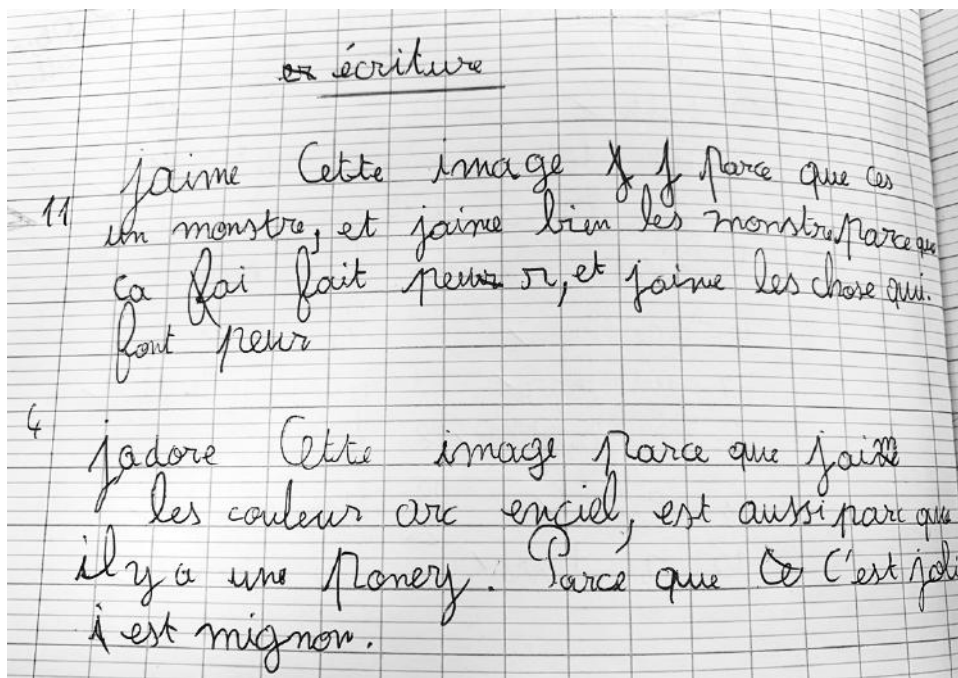 écriture
jaime Cette image parce que ces
11 un monstre, et jaime bien les monstre parce que
ça fai fait peur r, et jaime les chose qui.
font peur
4
jadore Cette image parce que jaime
les couleur arc enciel, est aussi parc que
il y a une ponery. Parce que C'est joli
i est mignon.